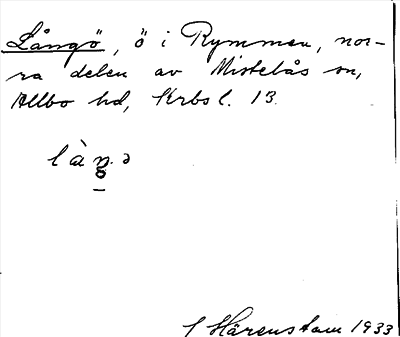 Långö, ö i Rymmen, nor-
ra delen av Mistelås sn,
Allbo hd, Krbs l. 13.
S Härenstam 1933